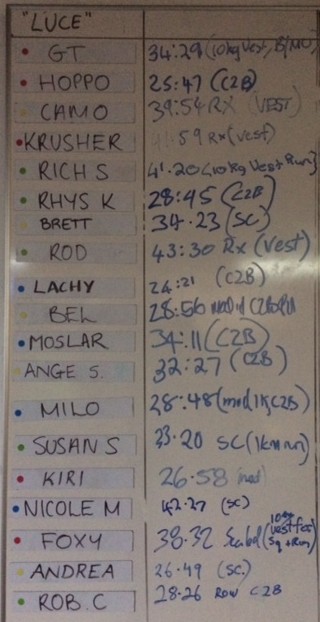 "LUCE"
GT 34:29 (10kg Vest, B/MU)
HOPPO 25:47 (C2B)
CAMO 39:54 RX (VEST)
KRUSHER 41:59 Rx (Vest)
RICH S 41.20 (10kg Vest Run)
RHYS K 28:45 (C2B)
BRETT 34.23 (SC)
ROD 43:30 Rx (Vest)
LACHY 24:21 (C2B)
BEL 28:56 mod
MOSLAR 34:11 (C2B)
ANGE S. 32:27 (C2B)
MILO 28:48 (mod 1k C2B)
SUSAN S 33.20 SC (1km run)
KIRI 26.58 (mod)
NICOLE M 42.27 (SC)
FOXY 38.32 Scaled (10kg Vest for Sq + Run)
ANDREA 26.49 (SC.)
ROB.C 28.26 Row C2B